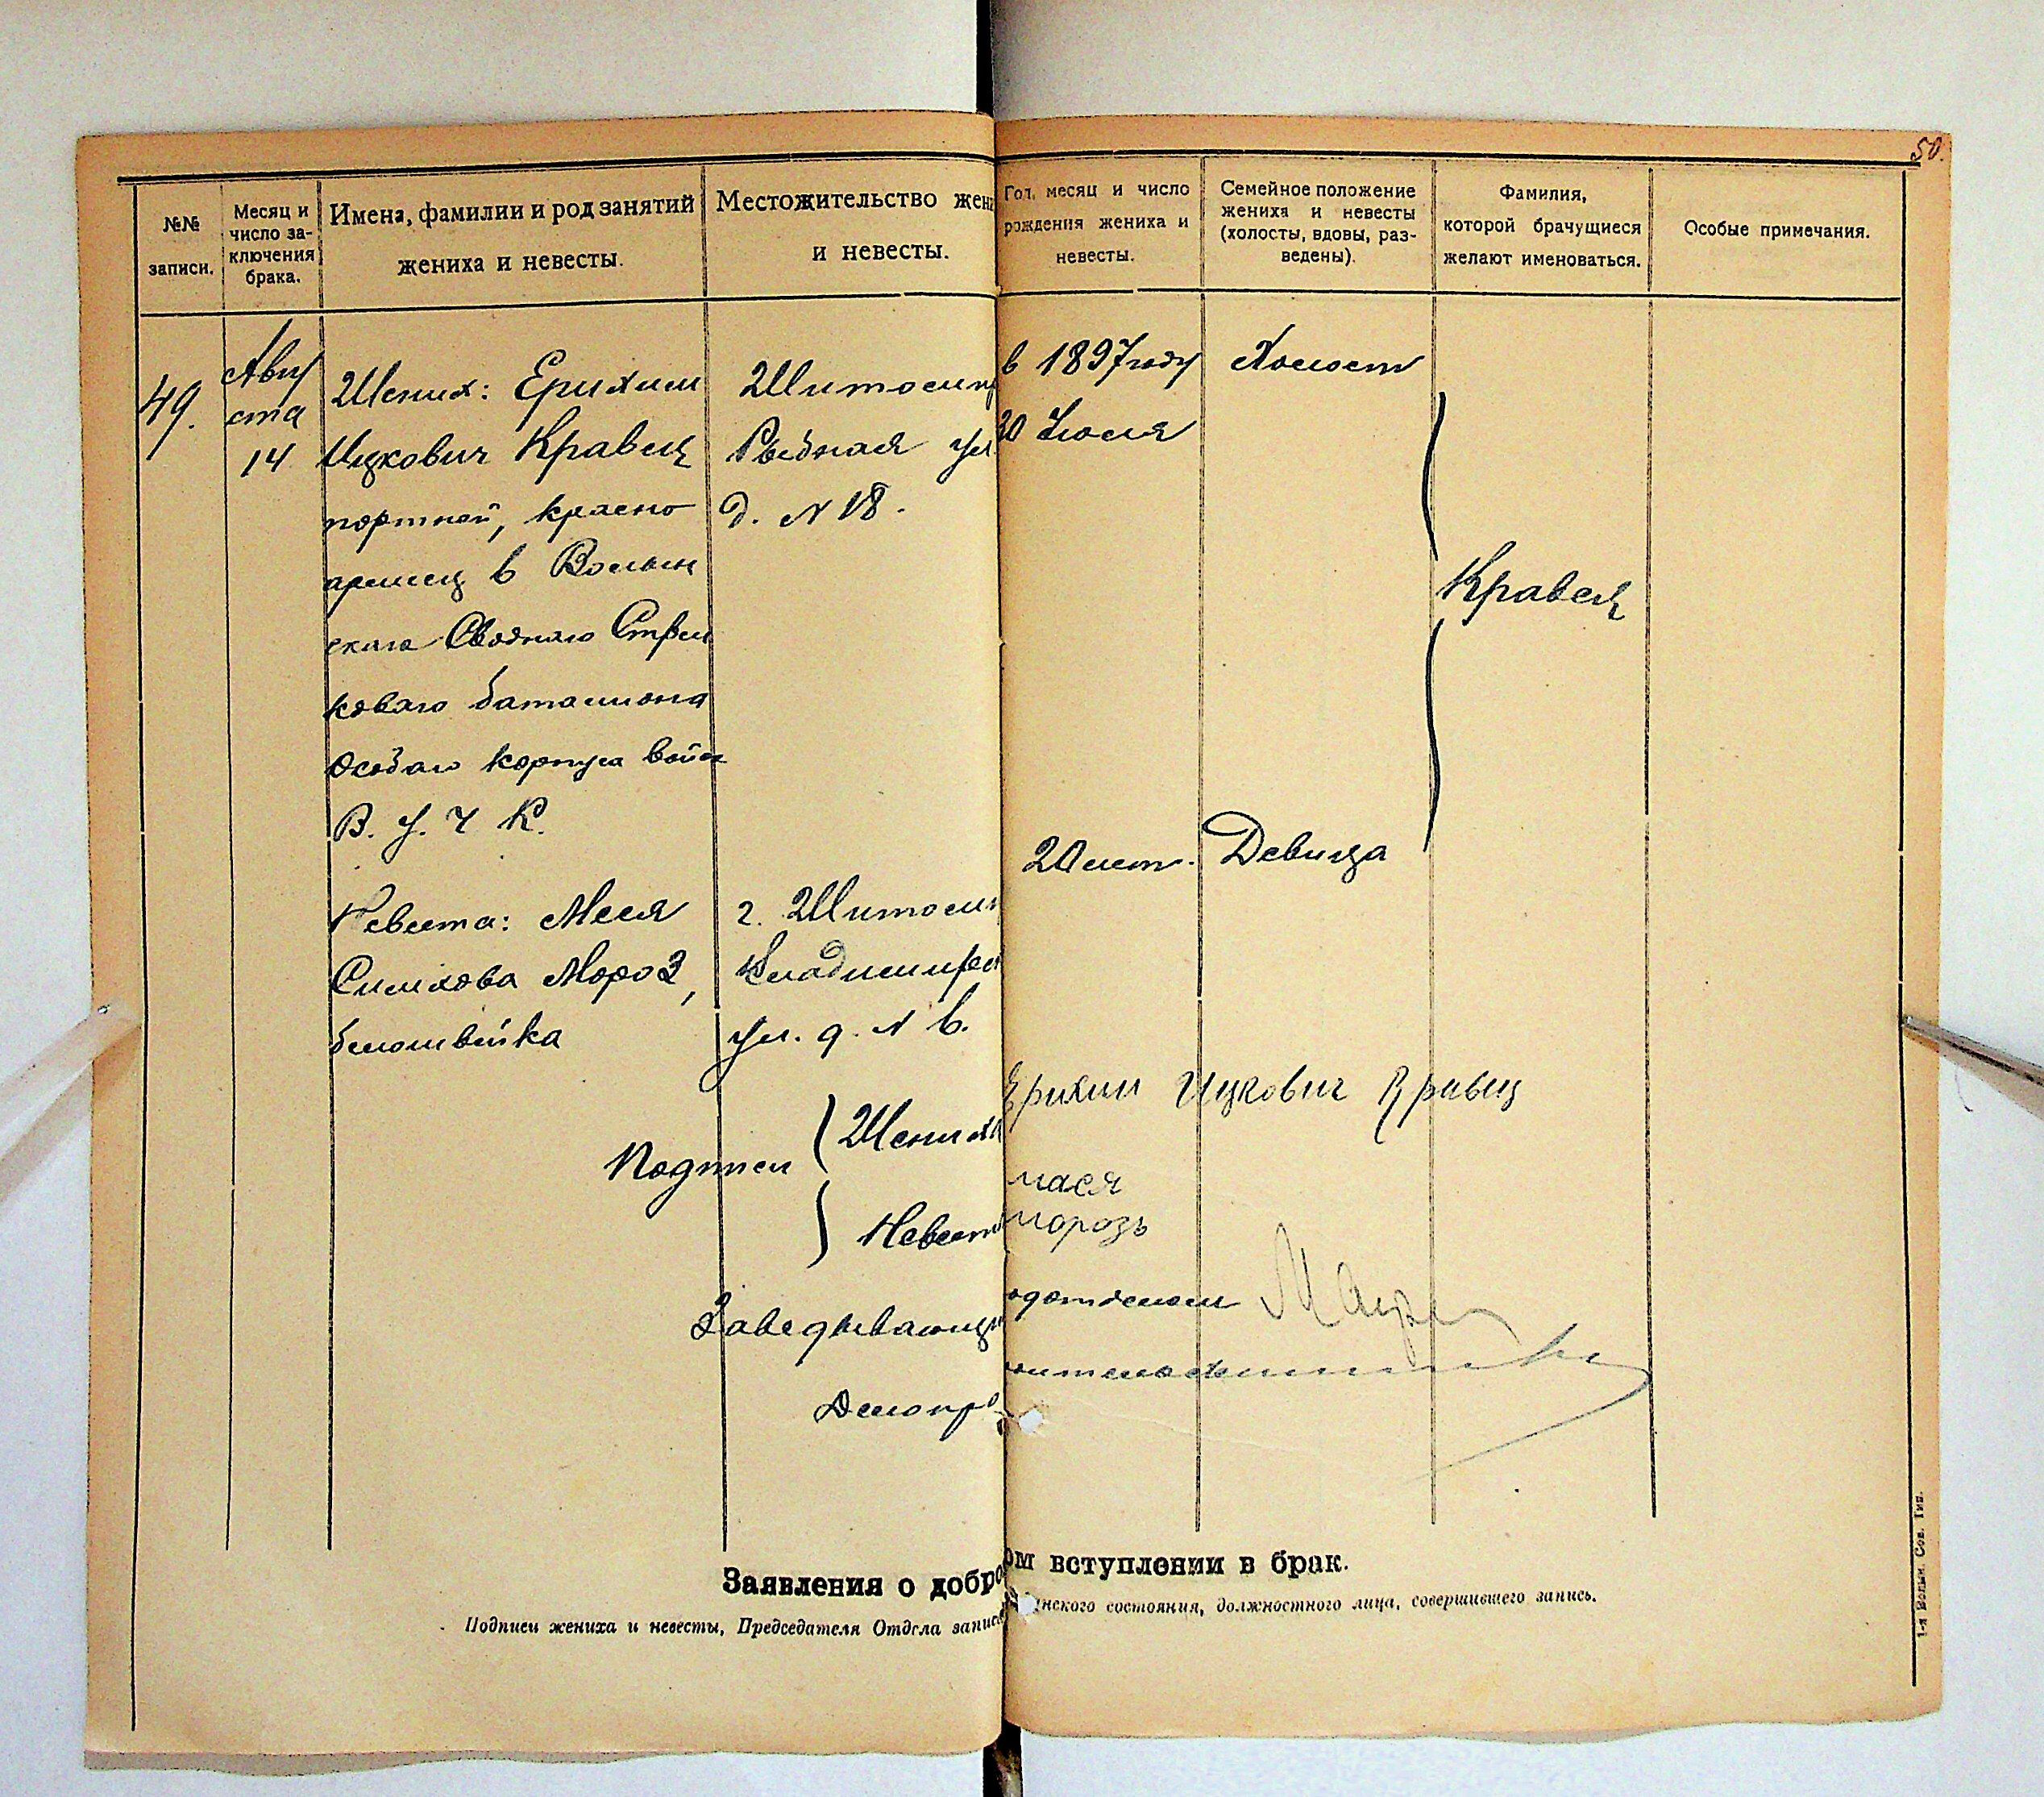 50.
№№ записи.
Месяц и число за-ключения брака.
Имена, фамилии и род занятий жениха и невесты.
Местожительство жени
и невесты.
Год, месяц и число рождения жениха и невесты.
Семейное положение жениха и невесты (холосты, вдовы, раз-ведены).
Фамилия, которой брачущиеся желают именоваться.
Особые примечания.
49.
Авгу
ста
14
Жених: Ерихим
Ицкович Кравец
портной, красно
армеец в Волын
скаго Сводного Стрел
коваго баталиона
Особаго корпуса войск
В. У. Ч К.
Житомир
Рыбная ул.
д. N 18.
в 1897 году
30 Июля
Холост
Кравец
Невеста: Меся
Симхова Мороз,
белошвейка
г. Житомир
Владимирск
ул. д. N 6.
20 лет.
Девица
Подписи
Жениха
Ерихим Ицкович Кравец
Невест
мася
морозъ
Заведывающ
одотделом
Делопро
Заявления о добро
ом вступлении в брак.
Подписи жениха и невесты, Председателя Отдела запис
нского состояния, должностного лица, совершившего запись.
1-я Волын. Сов. Тип.